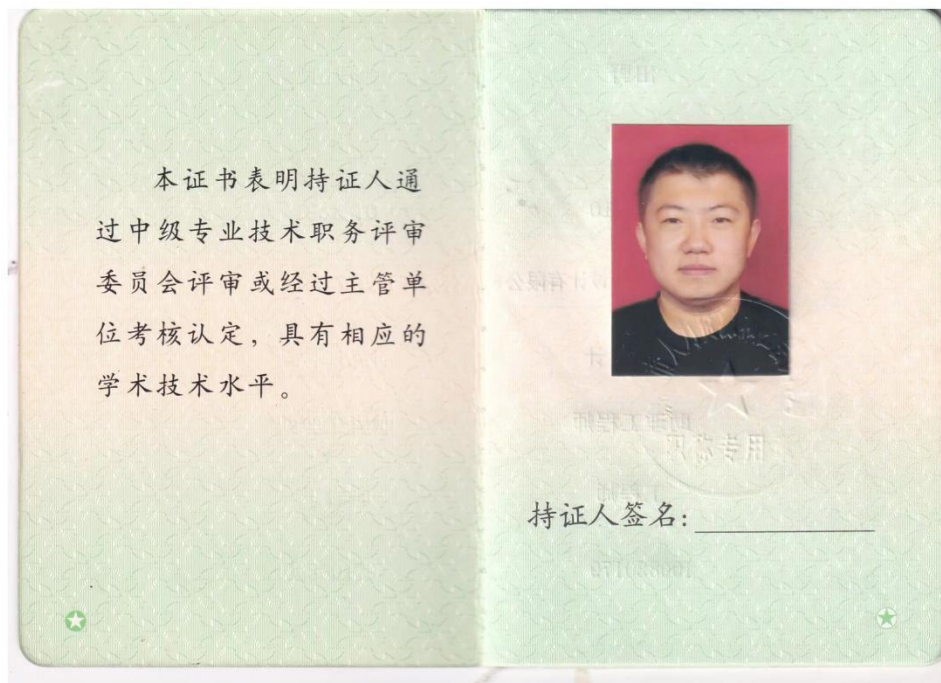 本证书表明持证人通
过中级专业技术职务评审
委员会评审或经过主管单
位考核认定，具有相应的
学术技术水平。
持证人签名：